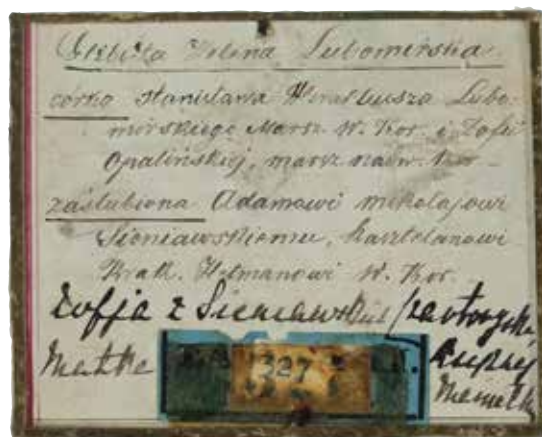 Elżbieta Helena Lubomirska
córka Stanisława Herakliusza Lubo-
mirskiego Marsz. W. Kor. i Zofii
Opalińskiej, marsz nadw. kor
zaślubiona Adamowi Mikołajowi
Sieniawskiemu, kasztelanowi
Krak. Hetmanowi W. Kor.
Zofja z Sieniawskich Czartoryska
Matka
327